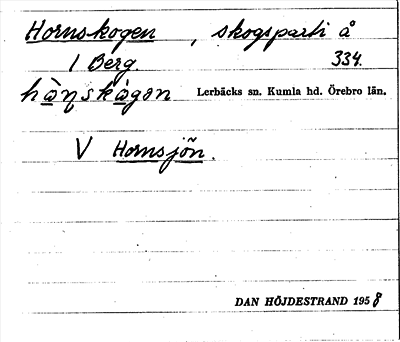 Hornskogen, skogsparti å
1 Berg. 334.
hàɳskágən Lerbäcks sn. Kumla hd. Örebro län.
V Hornsjön.
DAN HÖJDESTRAND 1958